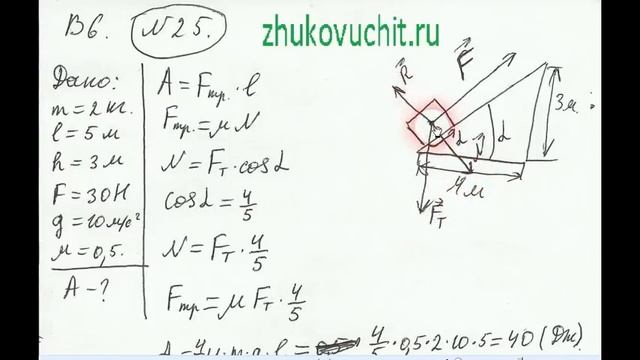 В6. №25.
zhukovuchit.ru
Дано:
m = 2 кг.
l = 5 м
h = 3 м
F = 30 Н
g = 10 м/с²
μ = 0,5.
A - ?
A = Fтр. · l
Fтр. = μ N
N = Fт · cos α
cos α = 4/5
N = Fт · 4/5
Fтр = μ Fт · 4/5
4/5 · 0,5 · 2 · 10 · 5 = 40 (Дж)
R
F
3м
α
α
4м
Fт